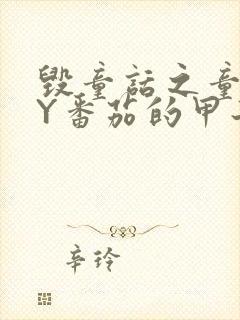 毁童话之童
Y番茄的甲
辛玲